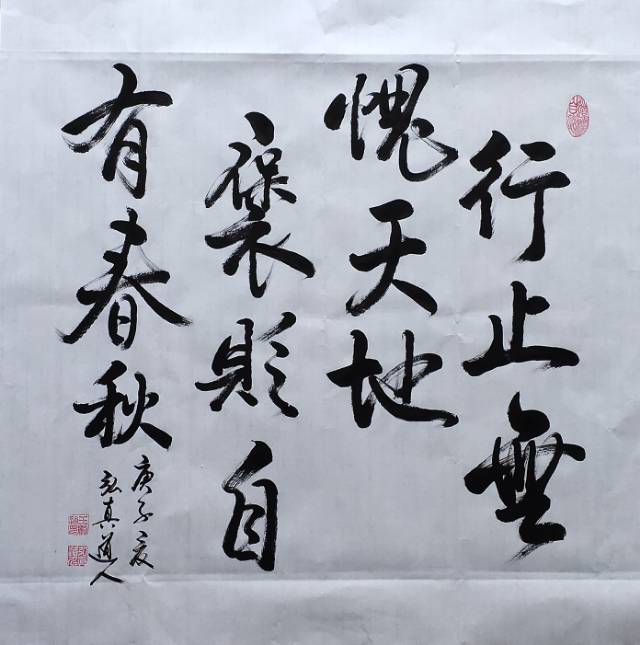 行止無
愧天地
褒貶自
有春秋
庚子夏
真道人